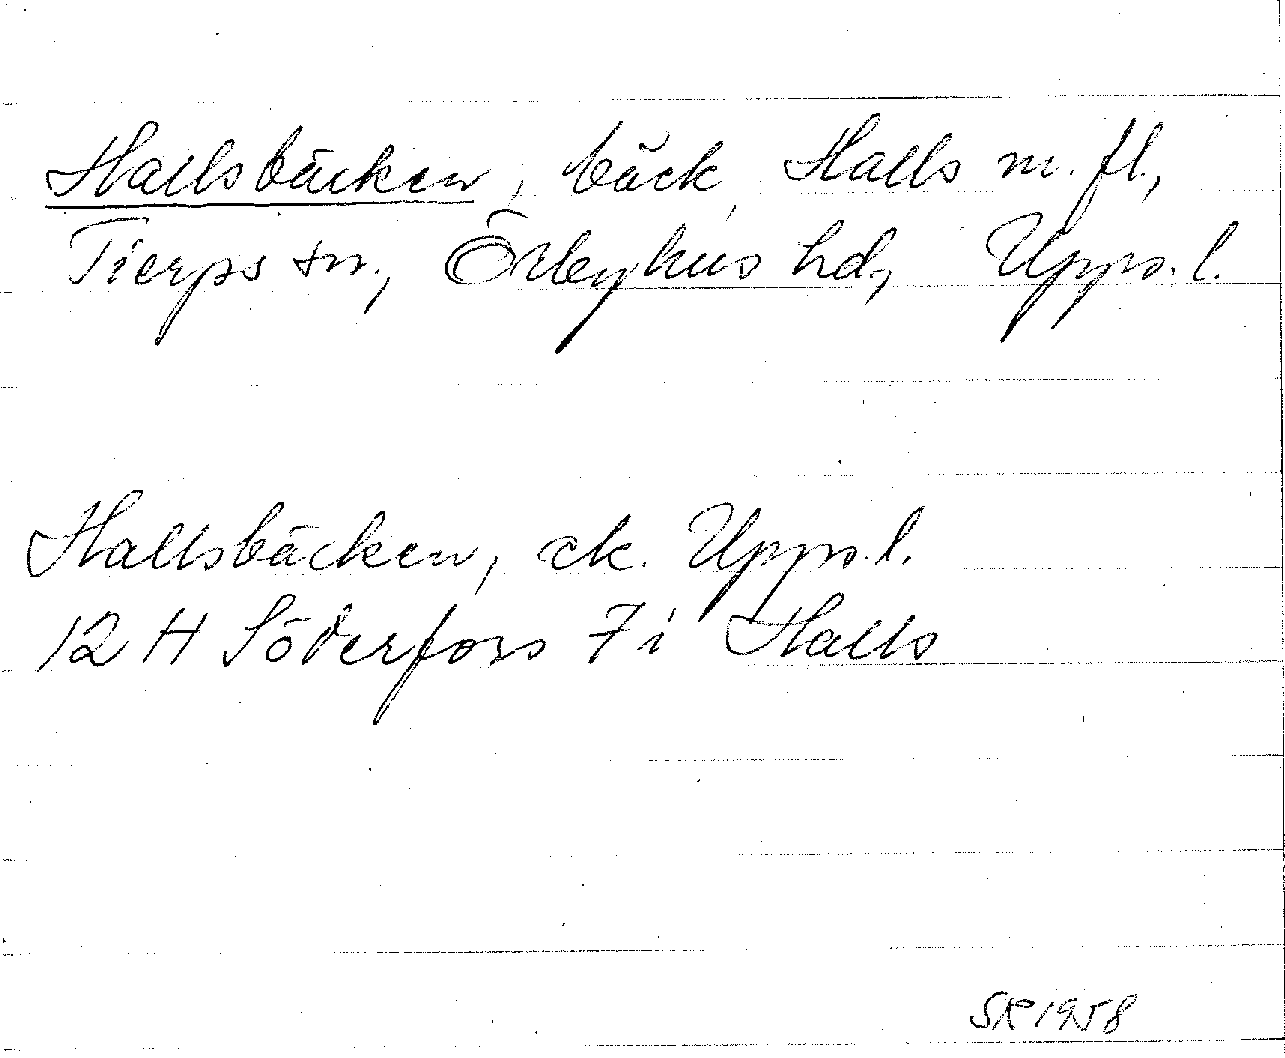 Hallsbäcken, bäck, Halls m. fl.,
Tierps sn., Örbyhus hd, Upps. l.
Hallsbäcken, ek. Upps. l.
12 H Söderfors 7 i Halls
SR 1958